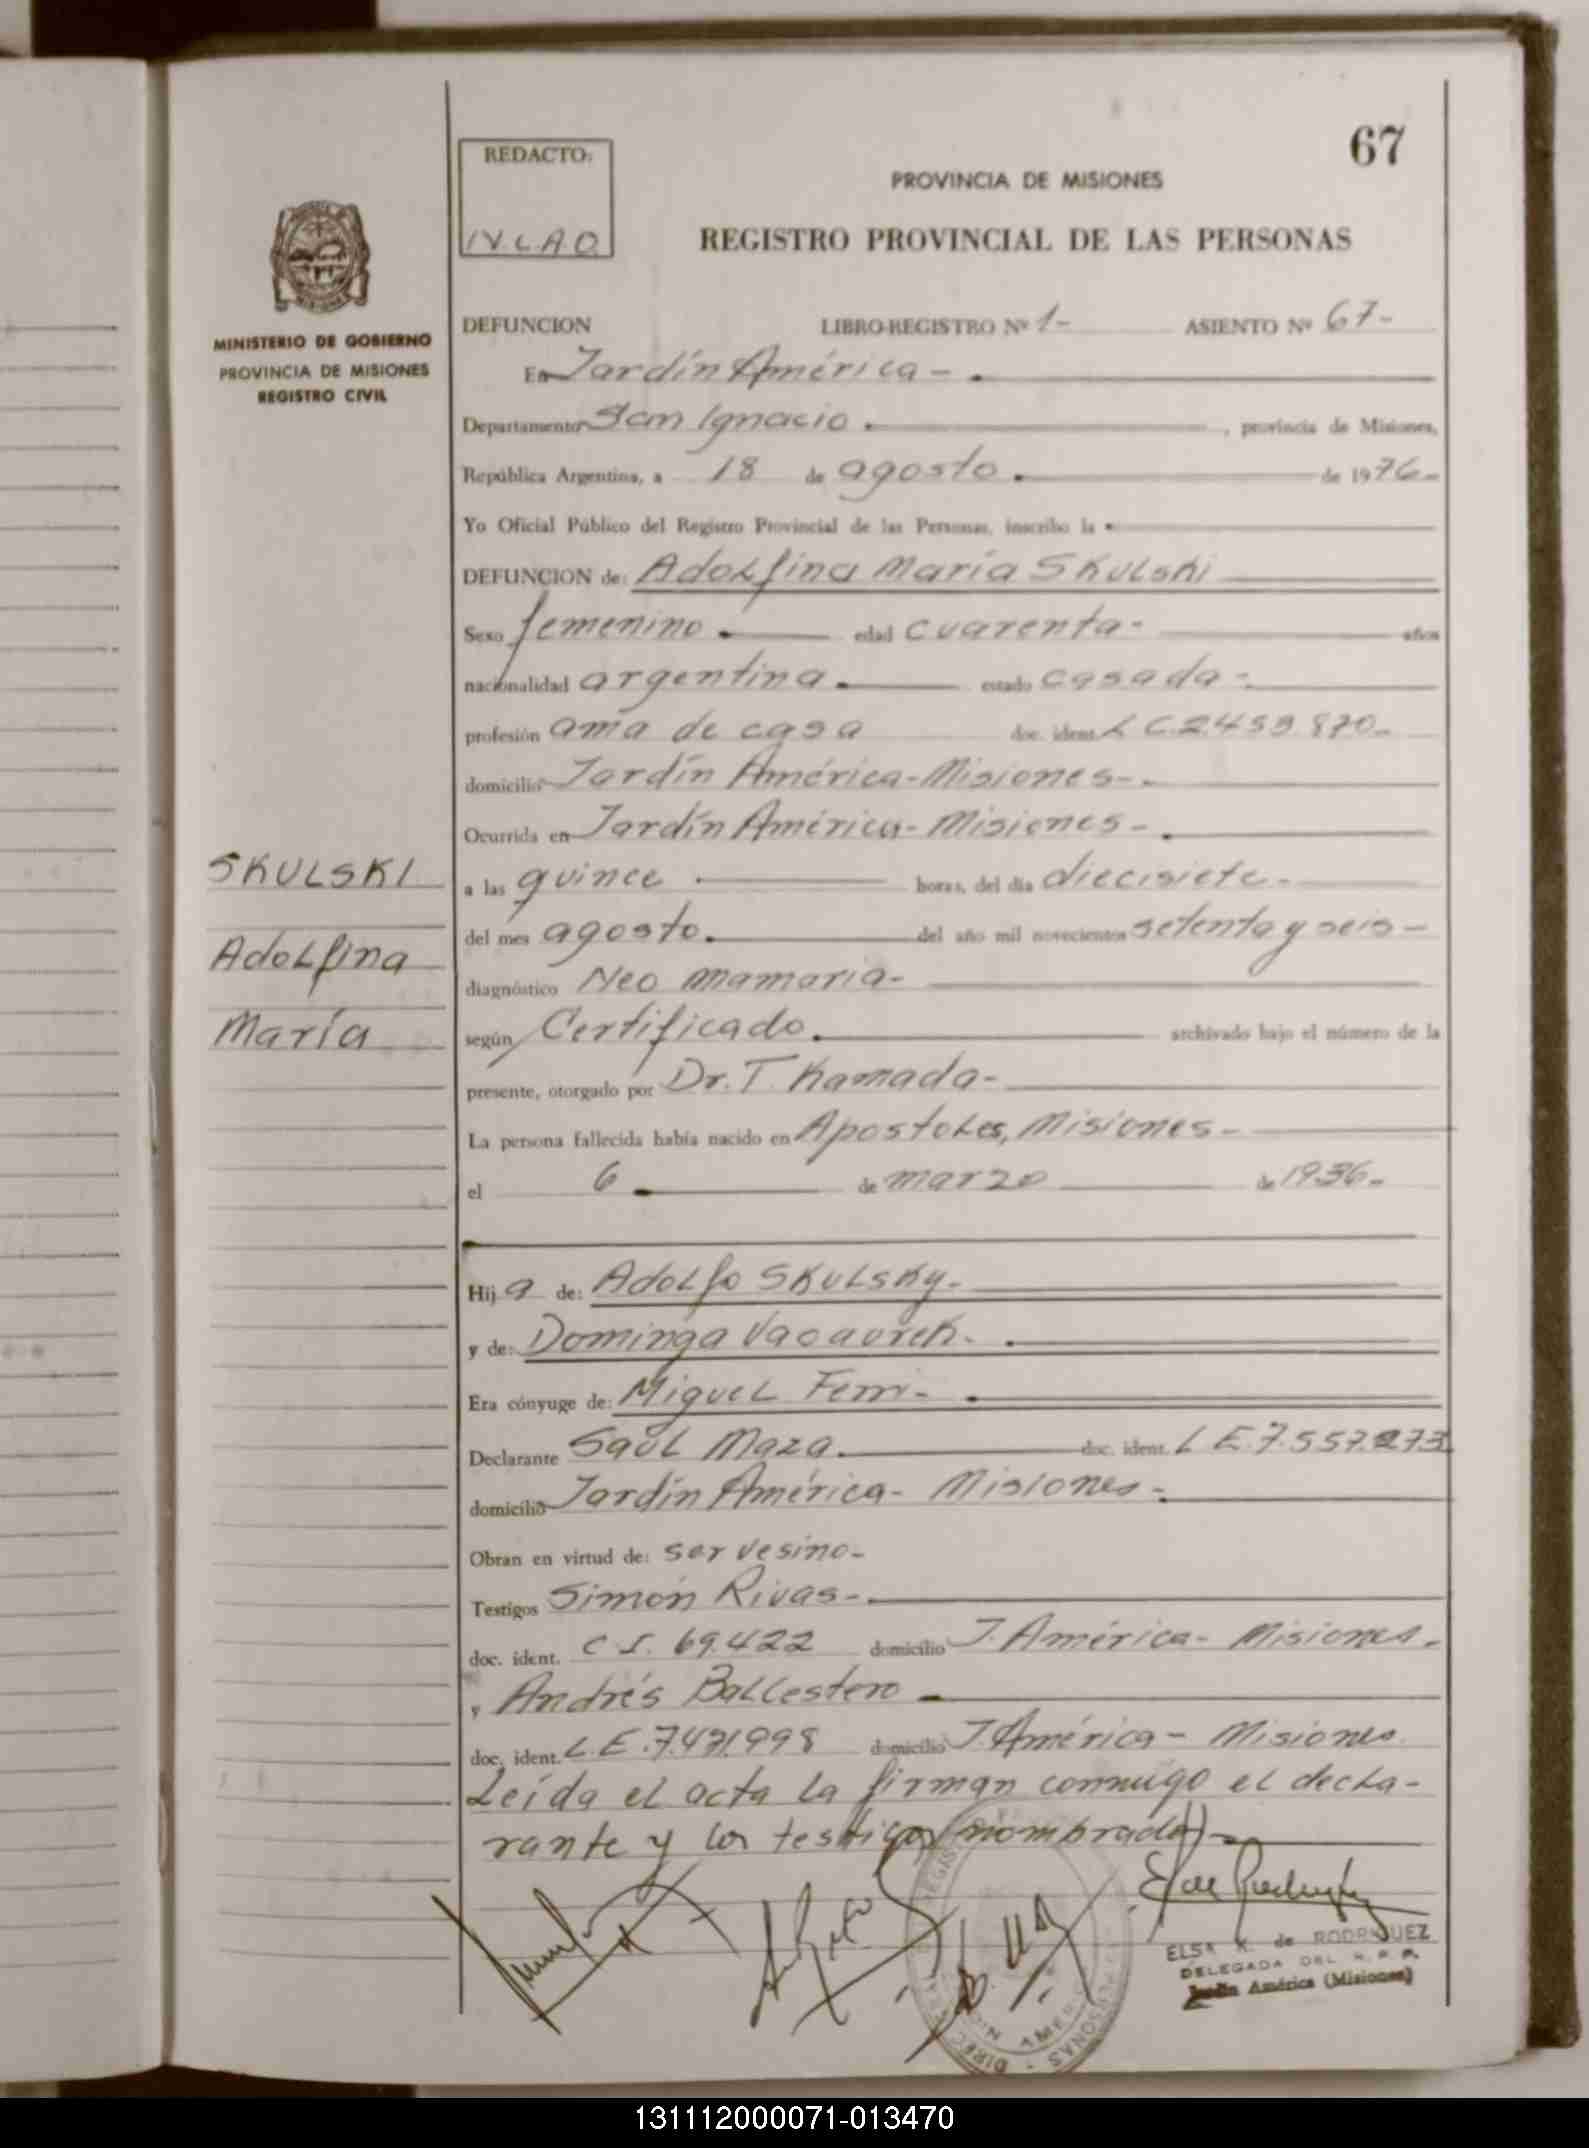 67
REDACTO:
PROVINCIA DE MISIONES
IV.L.A.O.
REGISTRO PROVINCIAL DE LAS PERSONAS
MINISTERIO DE GOBIERNO
PROVINCIA DE MISIONES
REGISTRO CIVIL
DEFUNCION LIBRO-REGISTRO Nº 1- ASIENTO Nº 67-
En Jardín América-
Departamento San Ignacio , provincia de Misiones,
República Argentina, a 18 de agosto de 1976-
Yo Oficial Público del Registro Provincial de las Personas, inscribo la
DEFUNCION de: Adolfina María Skulski
Sexo femenino edad cuarenta- años
nacionalidad argentina estado casada-
profesión ama de casa doc. ident. L C.2.459.870-
domicilio Jardín América-Misiones-
Ocurrida en Jardín América-Misiones-
a las quince horas, del día diecisiete-
del mes agosto del año mil novecientos setenta y seis-
diagnóstico Neo mamaria-
según Certificado archivado bajo el número de la
presente, otorgado por Dr. T. Kamada-
La persona fallecida había nacido en Apostoles, Misiones-
el 6 de marzo de 1936-
SKULSKI
Adolfina
María
Hij a de: Adolfo Skulsky-
y de: Dominga
Era cónyuge de: Miguel Ferri-
Declarante Saúl Maza doc. ident. L E.7.557.273
domicilio Jardín América- Misiones-
Obran en virtud de: ser vesino-
Testigos Simón Rivas-
doc. ident. C.I. 69.422 domicilio J. América- Misiones-
y Andrés Ballestero
doc. ident. L.E.7.471.998 domicilio J. América- Misiones
Leída el acta la firman conmigo el decla-
rante y los testigos nombrados-
ELSA K. de RODRIGUEZ
DELEGADA DEL R. P. P.
Jardín América (Misiones)
131112000071-013470